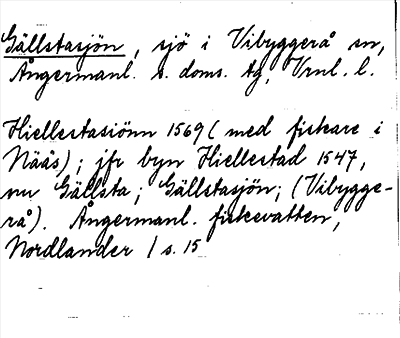 Gällstasjön, sjö i Vibyggerå sn,
Ångermanl. s. doms. tg, Vrnl. l.
Hiellestasiönn 1569 (med fiskare i
Nääs); jfr byn Hiellestad 1547,
nu Gällsta; Gällstasjön; (Vibygge-
rå). Ångermanl. fiskevatten,
Nordlander / s. 15